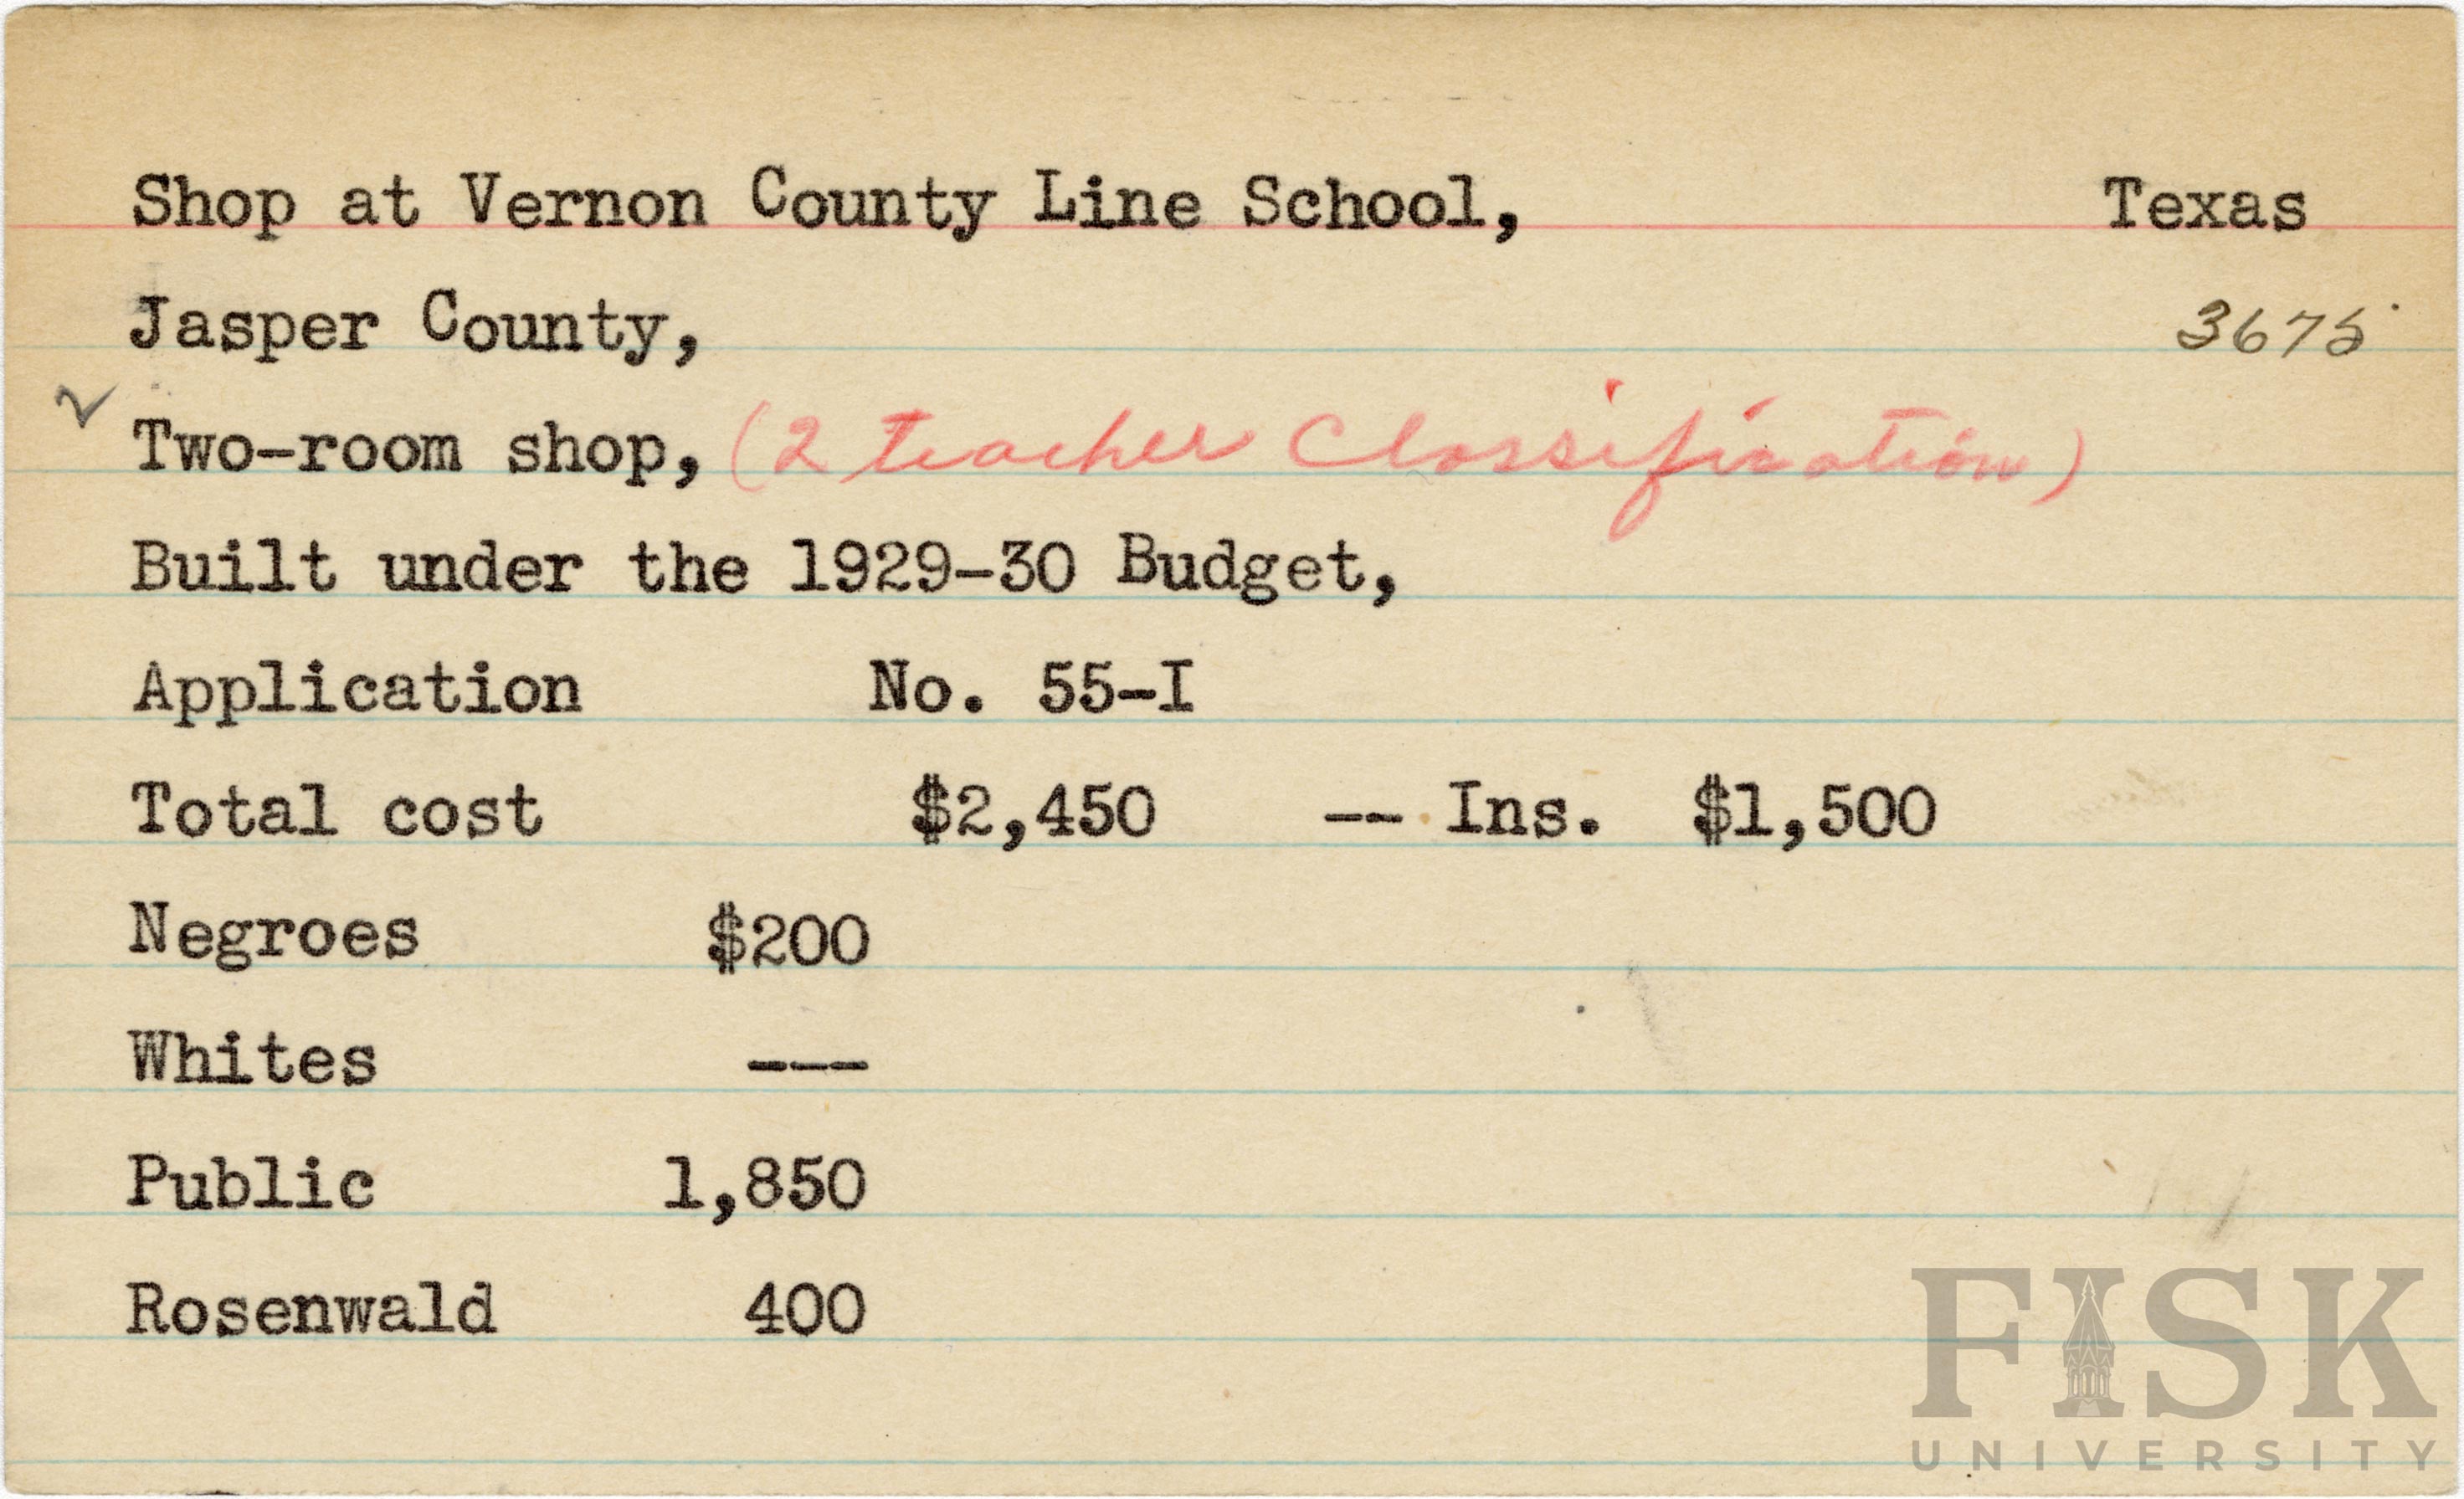 Shop at Vernon County Line School, Texas
Jasper County, 3675
✓ Two-room shop, (2 teacher Classification)
Built under the 1929-30 Budget,
Application No. 55-I
Total cost $2,450 -- Ins. $1,500
Negroes $200
Whites ---
Public 1,850
Rosenwald 400
FISK
UNIVERSITY